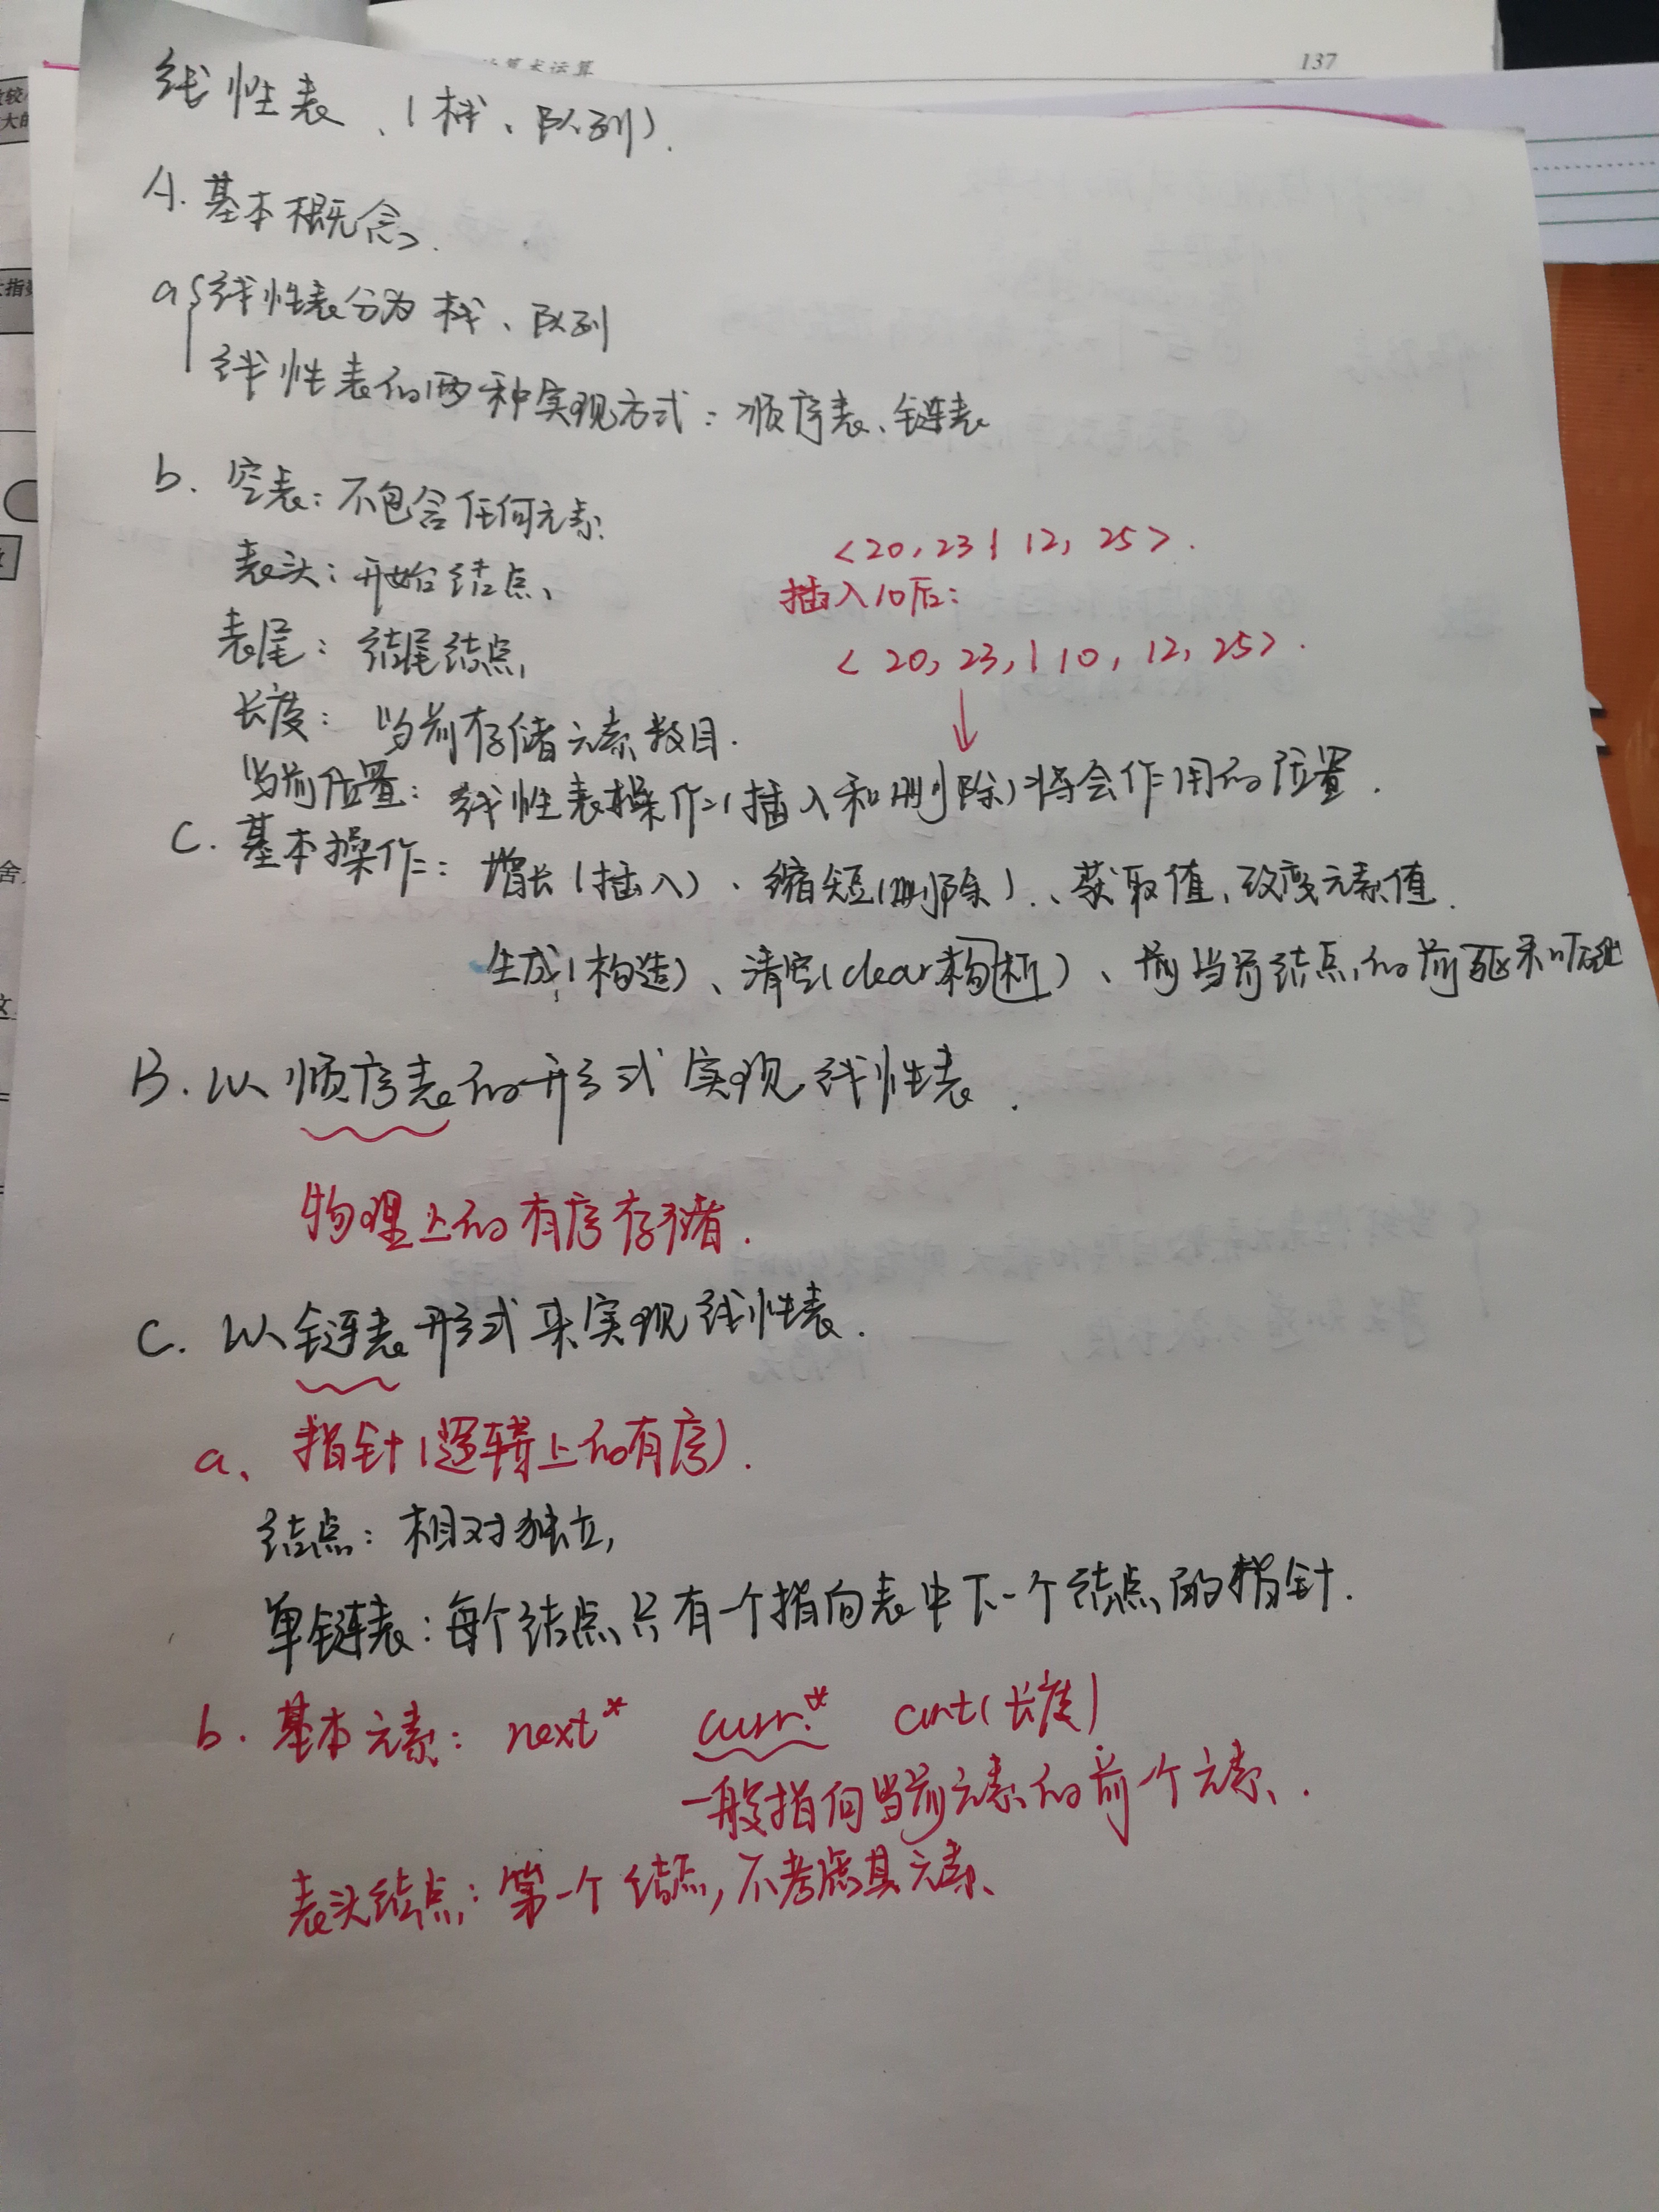 137
算术运算
线性表、(栈、队列).
A. 基本概念.
a { 线性表分为 栈、队列
线性表的两种实现方式: 顺序表、链表
b. 空表: 不包含任何元素.
表头: 开始结点、
表尾: 结尾结点,
长度: 当前存储元素数目.
<20, 23 | 12, 25>.
插入10后:
< 20, 23, | 10, 12, 25>.
↓
当前位置: 线性表操作(插入和删除)将会作用的位置.
C. 基本操作: 增长(插入)、缩短(删除)、获取值, 改变元素值.
生成(构造)、清空(clear析构)、当前结点的前驱和后继
B. 以顺序表的形式实现线性表.
物理上的有序存储.
C. 以链表形式来实现线性表.
a、指针(逻辑上的有序).
结点: 相对独立,
单链表: 每个结点只有一个指向表中下一个结点的指针.
b. 基本元素: next* curr* cnt(长度)
一般指向当前元素的前一个元素.
表头结点: 第一个结点, 不考虑其元素、